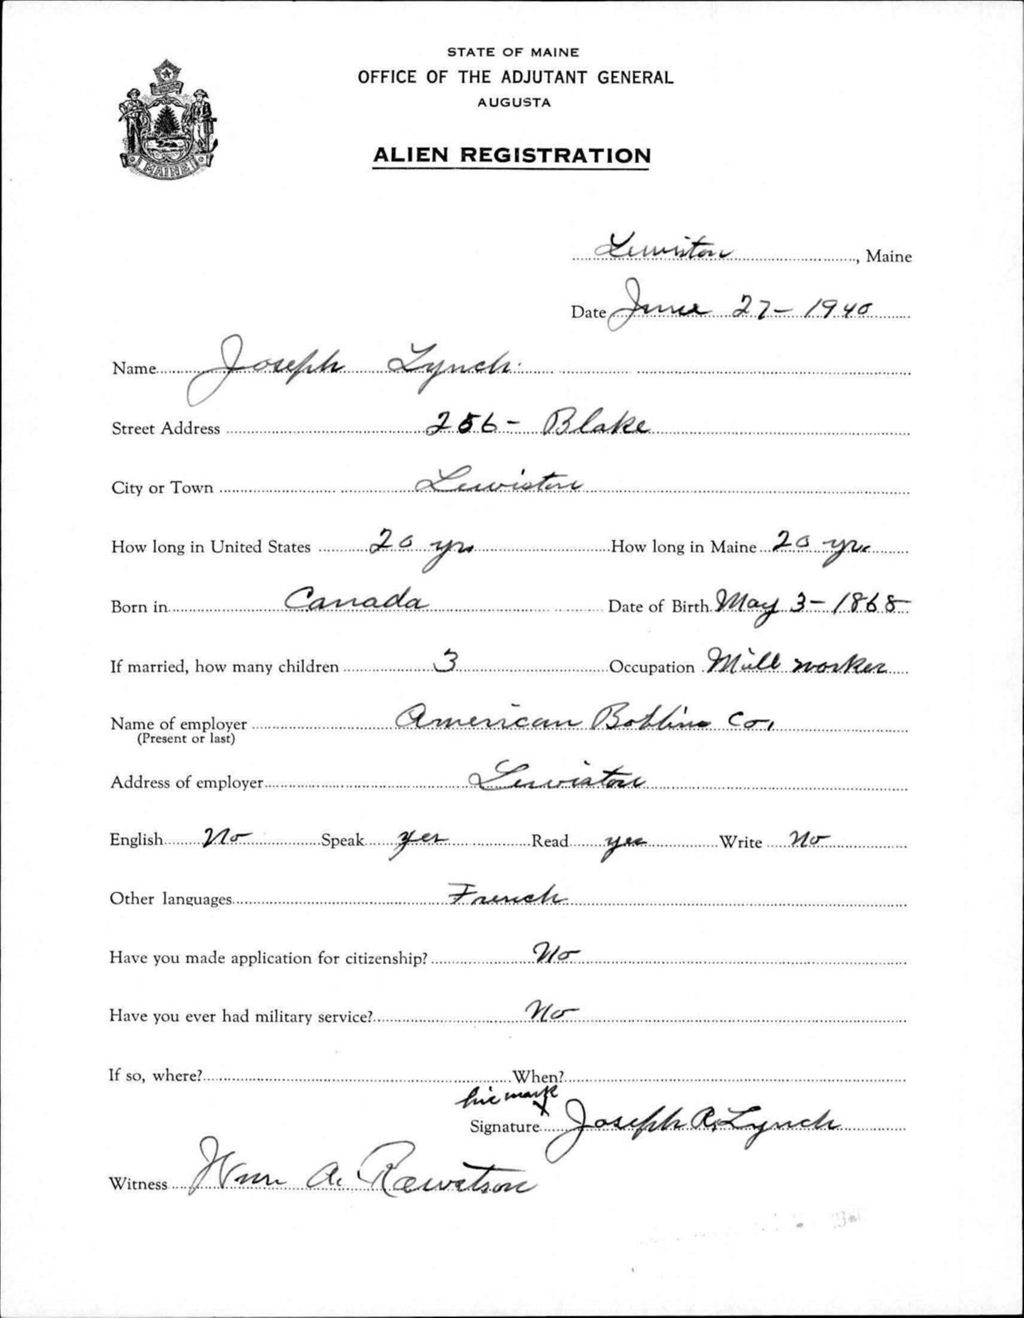 STATE OF MAINE
OFFICE OF THE ADJUTANT GENERAL
AUGUSTA
ALIEN REGISTRATION
MAINE
Lewiston, Maine
Date June 27-1940
Name Joseph Lynch.
Street Address 256- Blake
City or Town Lewiston
How long in United States 20 yrs How long in Maine 20 yrs
Born in Canada Date of Birth May 3-1868
If married, how many children 3 Occupation Mill worker
Name of employer American Bobbin Co.
(Present or last)
Address of employer Lewiston
English No Speak yes Read yes Write No
Other languages French
Have you made application for citizenship? No
Have you ever had military service? No
If so, where? When?
his mark
X
Signature Joseph R. Lynch
Witness Wm A.